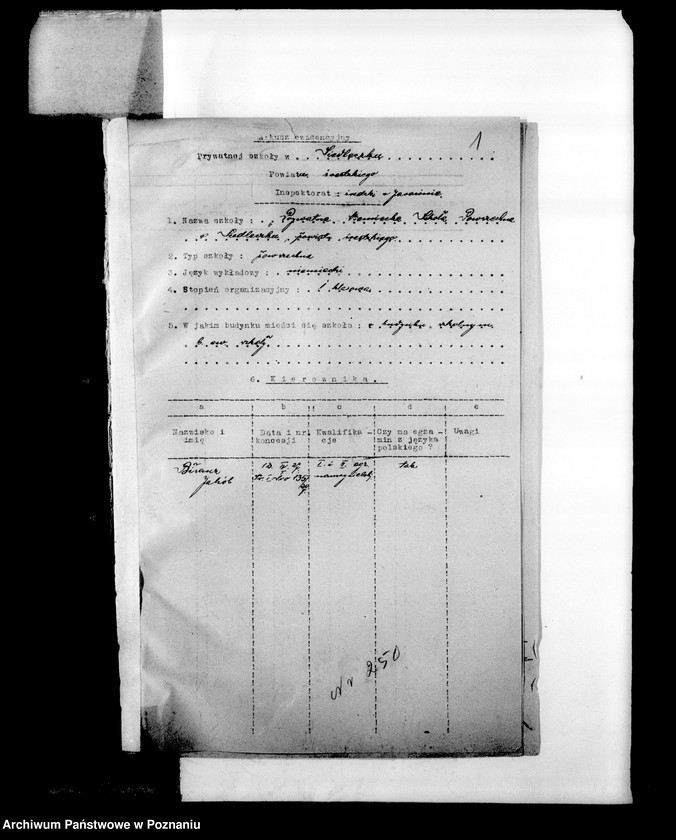 Arkusz ewidencyjny
1
Prywatnej szkoły w . . Siedleczku . . . . . . . .
Powiatu średzkiego
Inspektorat :
1. Nazwa szkoły : . . Prywatna Niemiecka Szkoła Powszechna
w Siedleczku, powiatu średzkiego
2. Typ szkoły : powszechna
3. Język wykładowy : . niemiecki
4. Stopień organizacyjny : . I klasowa
5. W jakim budynku mieści się szkoła : w budynku szkolnym
szkoły
6. Kierownika.
a b c d e
Nazwisko i Data i nr Kwalifika- Czy ma egza- Uwagi
imię koncesji cje min z języka
polskiego ?
I. i II. egz. tak
Jakób
Nr 250
Archiwum Państwowe w Poznaniu